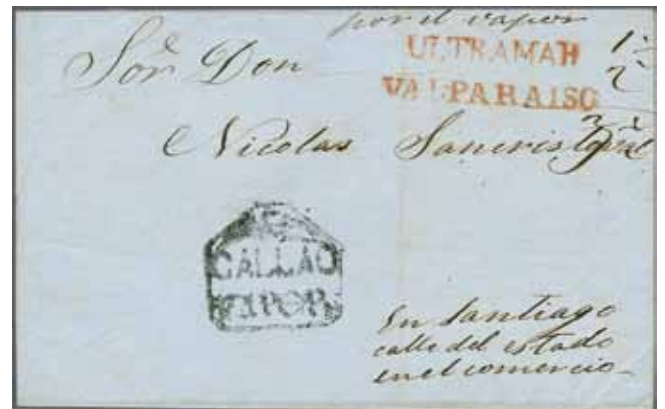 por el vapor
ULTRAMAR
VALPARAISO
Sor Don
Nicolas Sancristoval
CALLAO
VAPOR
En Santiago
calle del estado
en el comercio